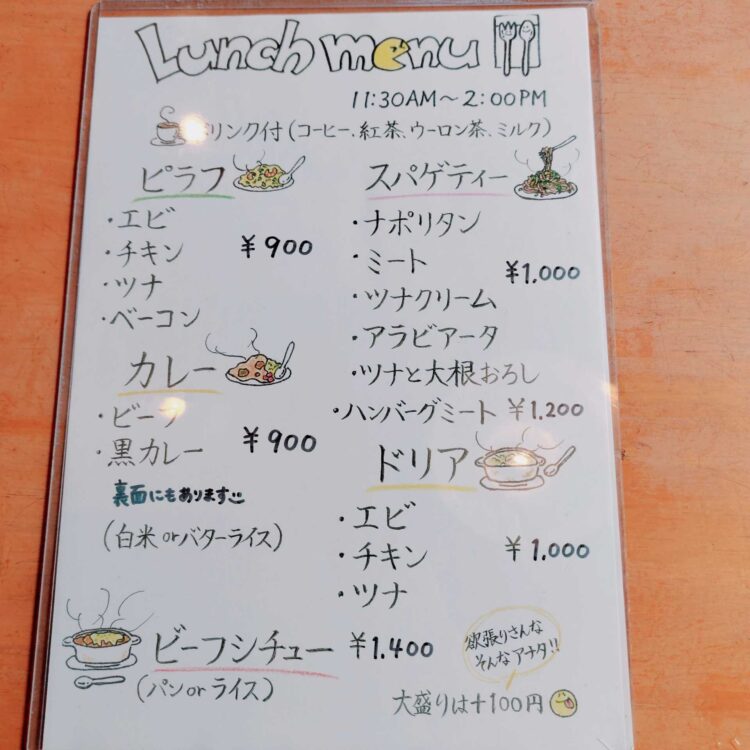 Lunch menu
11:30AM～2:00PM
リンク付(コーヒー、紅茶、ウーロン茶、ミルク)
ピラフ
・エビ
・チキン
・ツナ
・ベーコン
¥900
カレー
・ビーフ
・黒カレー
¥900
裏面にもあります
(白米orバターライス)
スパゲティー
・ナポリタン
・ミート
・ツナクリーム
・アラビアータ
・ツナと大根おろし
¥1,000
・ハンバーグミート ¥1,200
ドリア
・エビ
・チキン
・ツナ
¥1,000
ビーフシチュー ¥1,400
(パンorライス)
欲張りさんな
そんなアナタ!!
大盛りは+100円